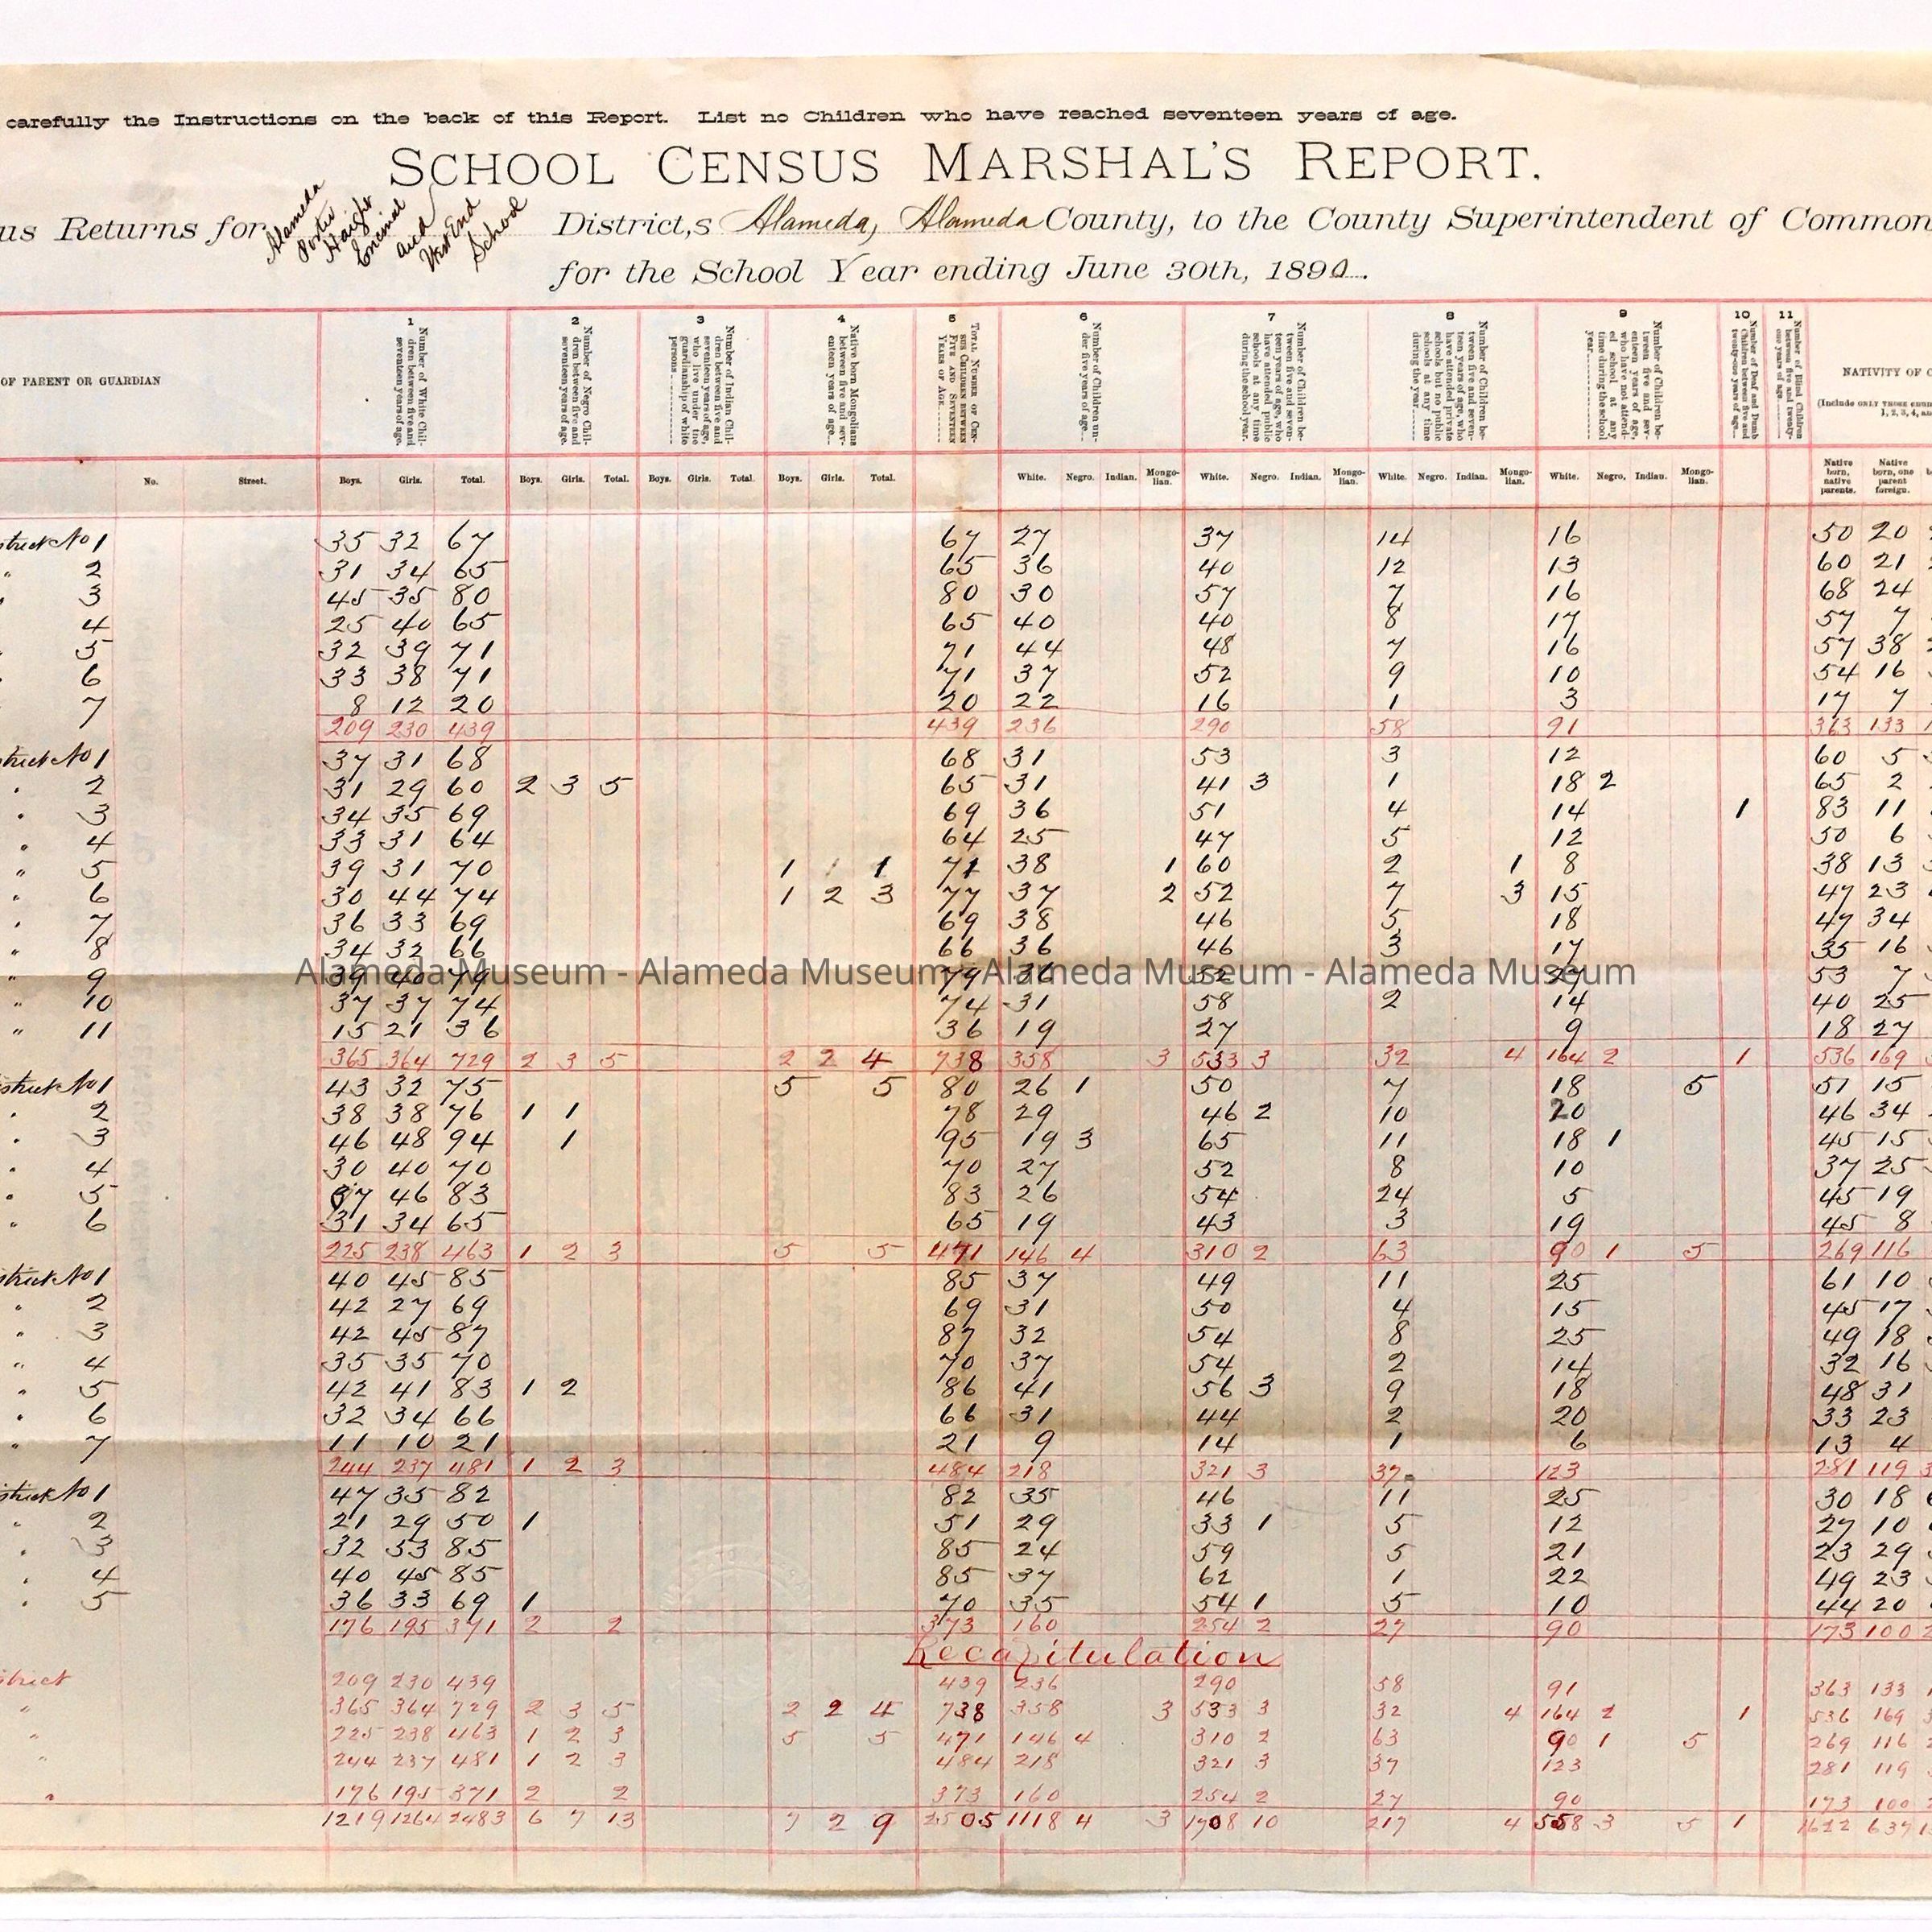 carefully the Instructions on the back of this Report. List no Children who have reached seventeen years of age.
SCHOOL CENSUS MARSHAL'S REPORT.
us Returns for Alameda Porter Haight Encinal and West End School District,s Alameda, Alameda County, to the County Superintendent of Common
for the School Year ending June 30th, 1890.
OF PARENT OR GUARDIAN
No. Street.
1 Number of White Children between five and seventeen years of age.
2 Number of Negro Children between five and seventeen years of age.
3 Number of Indian Children between five and seventeen years of age, who live under the guardianship of white persons
4 Native born Mongolians between five and seventeen years of age
5 TOTAL NUMBER OF CENSUS CHILDREN BETWEEN FIVE AND SEVENTEEN YEARS OF AGE
6 Number of Children under five years of age
7 Number of Children between five and seventeen years of age, who have attended public schools at any time during the school year.
8 Number of Children between five and seventeen years of age, who have attended private schools but no public schools at any time during the year
9 Number of Children between five and seventeen years of age, who have not attended school at any time during the school year
10 Number of Deaf and Dumb Children between five and twenty-one years of age
11 Number of Blind Children between five and twenty-one years of age
NATIVITY OF C
(Include ONLY THOSE
1, 2, 3, 4,
Boys. Girls. Total. Boys. Girls. Total. Boys. Girls. Total. Boys. Girls. Total. White. Negro. Indian. Mongolian. White. Negro. Indian. Mongolian. White. Negro. Indian. Mongolian. White. Negro, Indian. Mongolian. Native born, native parents. Native born, one parent foreign.
strict No 1 35 32 67 67 27 37 14 16 50 20
" 2 31 34 65 65 36 40 12 13 60 21
3 45 35 80 80 30 57 7 16 68 24
4 25 40 65 65 40 40 8 17 57 7
5 32 39 71 71 44 48 7 16 57 38
6 33 38 71 71 37 52 9 10 54 16
7 8 12 20 20 22 16 1 3 17 7
209 230 439 439 236 290 58 91 363 133
strict No 1 37 31 68 68 31 53 3 12 60 5
" 2 31 29 60 2 3 5 65 31 41 3 1 18 2 65 2
" 3 34 35 69 69 36 51 4 14 1 83 11
" 4 33 31 64 64 25 47 5 12 50 6
" 5 39 31 70 1 1 71 38 1 60 2 1 8 38 13
" 6 30 44 74 1 2 3 77 37 2 52 7 3 15 47 23
" 7 36 33 69 69 38 46 5 18 47 34
" 8 34 32 66 66 36 46 3 17 35 16
Alameda Museum - Alameda Museum - Alameda Museum - Alameda Museum
" 9 39 40 79 79 36 52 27 53 7
" 10 37 37 74 74 31 58 2 14 40 25
" 11 15 21 36 36 19 27 9 18 27
365 364 729 2 3 5 2 2 4 738 358 3 533 3 32 4 164 2 1 536 169
strict No 1 43 32 75 5 5 80 26 1 50 7 18 5 51 15
" 2 38 38 76 1 1 78 29 46 2 10 20 46 34
" 3 46 48 94 1 95 19 3 65 11 18 1 45 15
" 4 30 40 70 70 27 52 8 10 37 25
" 5 37 46 83 83 26 54 24 5 45 19
" 6 31 34 65 65 19 43 3 19 45 8
225 238 463 1 2 3 5 5 471 146 4 310 2 63 90 1 5 269 116
strict No 1 40 45 85 85 37 49 11 25 61 10
" 2 42 27 69 69 31 50 4 15 45 17
" 3 42 45 87 87 32 54 8 25 49 18
" 4 35 35 70 70 37 54 2 14 32 16
" 5 42 41 83 1 2 86 41 56 3 9 18 48 31
" 6 32 34 66 66 31 44 2 20 33 23
" 7 11 10 21 21 9 14 1 6 13 4
244 237 481 1 2 3 484 218 321 3 37 123 281 119
strict No 1 47 35 82 82 35 46 11 25 30 18
" 2 21 29 50 1 51 29 33 1 5 12 27 10
" 3 32 53 85 85 24 59 5 21 23 29
" 4 40 45 85 85 37 62 1 22 49 23
" 5 36 33 69 1 70 35 54 1 5 10 44 20
176 195 371 2 2 373 160 254 2 27 90 173 100
Recapitulation
strict 209 230 439 439 236 290 58 91 363 133
" 365 364 729 2 3 5 2 2 4 738 358 3 533 3 32 4 164 2 1 536 169
" 225 238 463 1 2 3 5 5 471 146 4 310 2 63 90 1 5 269 116
" 244 237 481 1 2 3 484 218 321 3 37 123 281 119
" 176 195 371 2 2 373 160 254 2 27 90 173 100
1219 1264 2483 6 7 13 7 2 9 2505 1118 4 3 1708 10 217 4 558 3 5 1 1622 637